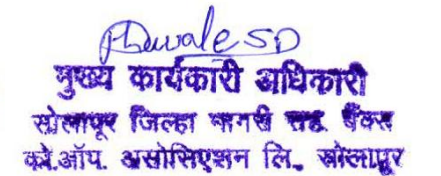 मुख्य कार्यकारी अधिकारी
सोलापूर जिल्हा नागरी सह. बँक्स
को.ऑप. असोसिएशन लि., सोलापूर